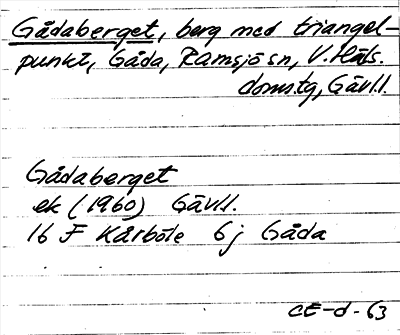 Gådaberget, berg med triangel-
punkt, Gåda, Ramsjö sn, V. Häls.
doms.tg, Gävl.l.
Gådaberget
ek (1960) Gävl.l.
16 F Kårböle 6j Gåda
CE-d-63